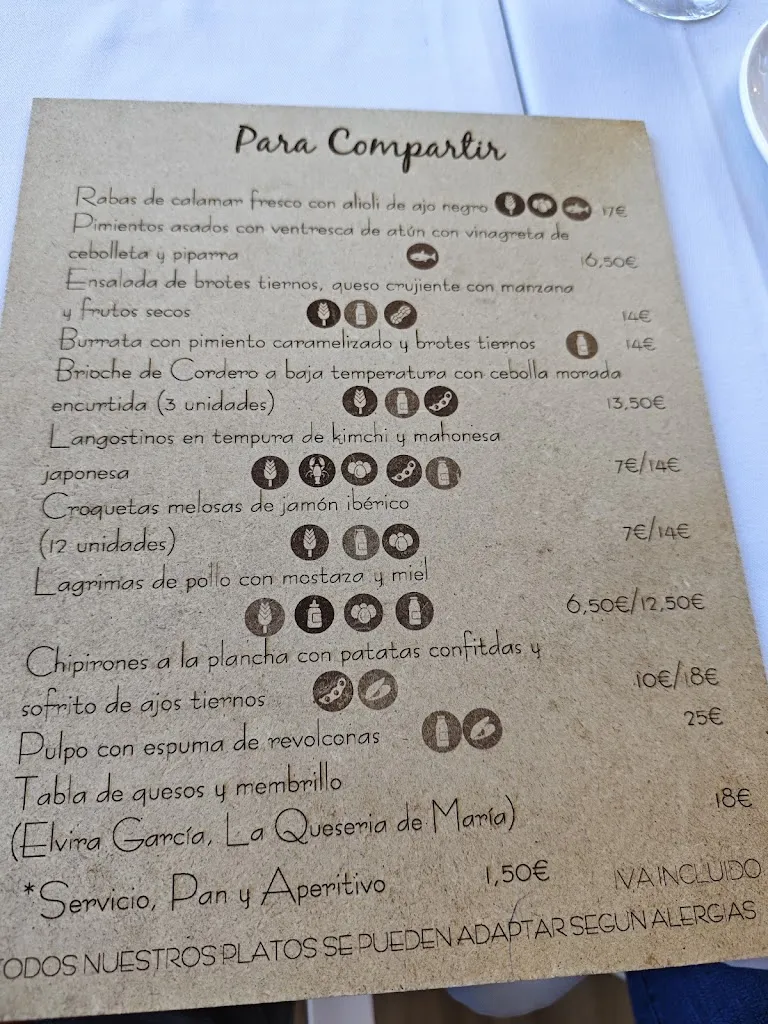 Para Compartir
Rabas de calamar fresco con alioli de ajo negro 17€
Pimientos asados con ventresca de atún con vinagreta de
cebolleta y piparra 16,50€
Ensalada de brotes tiernos, queso crujiente con manzana
y frutos secos 14€
Burrata con pimiento caramelizado y brotes tiernos 14€
Brioche de Cordero a baja temperatura con cebolla morada
encurtida (3 unidades) 13,50€
Langostinos en tempura de kimchi y mahonesa
japonesa 7€/14€
Croquetas melosas de jamón ibérico
(12 unidades) 7€/14€
Lagrimas de pollo con mostaza y miel
6,50€/12,50€
Chipirones a la plancha con patatas confitdas y
sofrito de ajos tiernos 10€/18€
Pulpo con espuma de revolconas 25€
Tabla de quesos y membrillo
(Elvira García, La Queseria de María) 18€
*Servicio, Pan y Aperitivo 1,50€ IVA INCLUIDO
TODOS NUESTROS PLATOS SE PUEDEN ADAPTAR SEGUN ALERGIAS